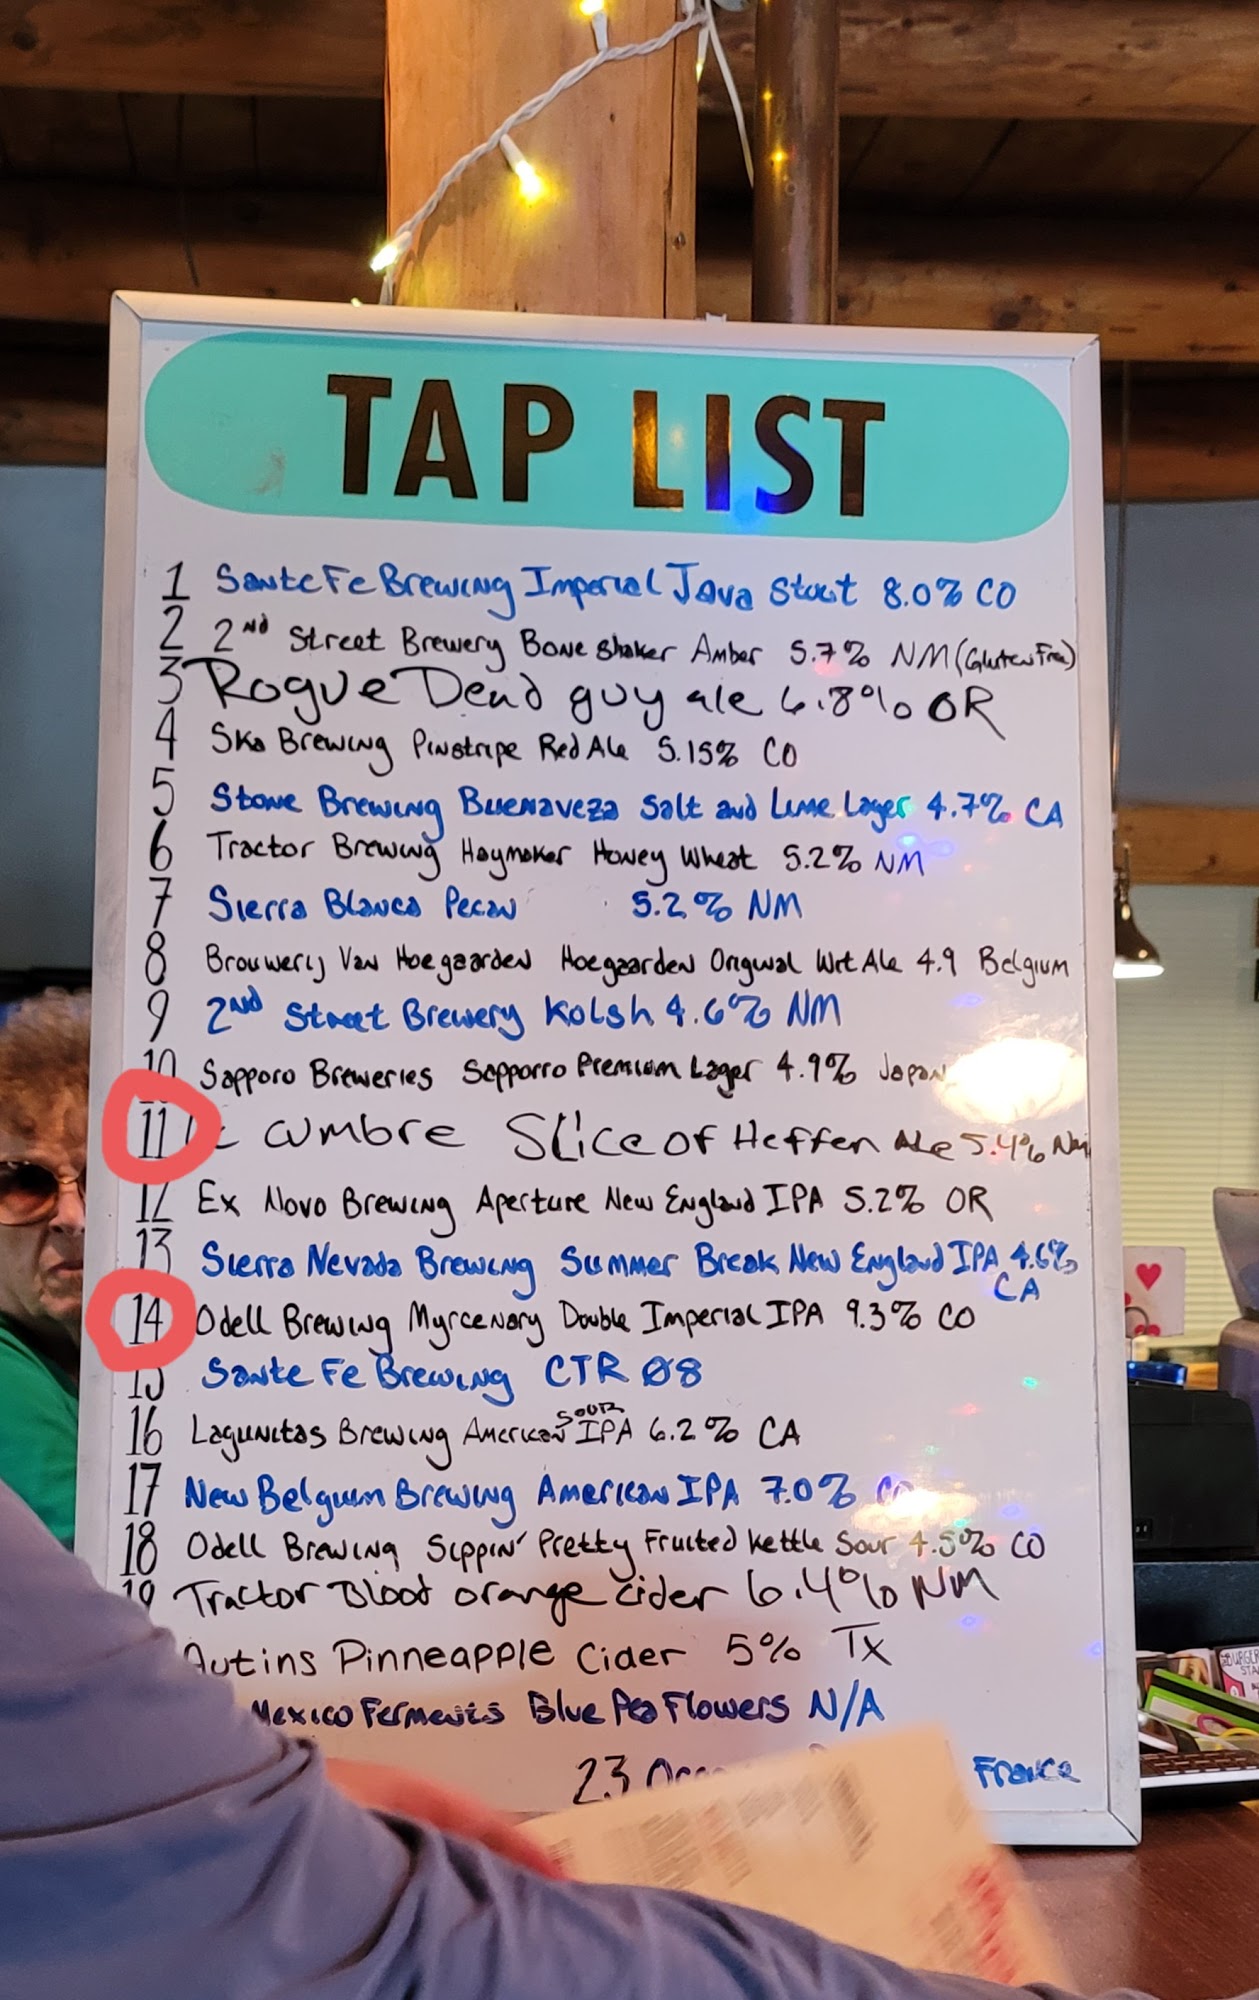 TAP LIST
1 Sante Fe Brewing Imperial Java Stout 8.0% CO
2 2nd Street Brewery Bone Shaker Amber 5.7% NM (Gluten Free)
3 Rogue Dead guy ale 6.8% OR
4 Ska Brewing Pinstripe Red Ale 5.15% CO
5 Stone Brewing Buenaveza Salt and Lime Lager 4.7% CA
6 Tractor Brewing Haymaker Honey Wheat 5.2% NM
7 Sierra Blanca Pecan 5.2% NM
8 Brouwerij Van Hoegaarden Hoegaarden Original Wit Ale 4.9 Belgium
9 2nd Street Brewery Kolsh 4.6% NM
10 Sapporo Breweries Sapporro Premium Lager 4.9% Japan
11 cumbre Slice of Heffen Ale 5.4% NM
12 Ex Novo Brewing Aperture New England IPA 5.2% OR
13 Sierra Nevada Brewing Summer Break New England IPA 4.6%
CA
14 Odell Brewing Myrcenary Double Imperial IPA 9.3% CO
15 Sante Fe Brewing CTR 08
16 Lagunitas Brewing American SOUR IPA 6.2% CA
17 New Belgium Brewing American IPA 7.0% CO
18 Odell Brewing Sippin' Pretty Fruited Kettle Sour 4.5% CO
19 Tractor Blood orange cider 6.4% NM
Autins Pinneapple Cider 5% Tx
Mexico Ferments Blue Pea Flowers N/A
23 France